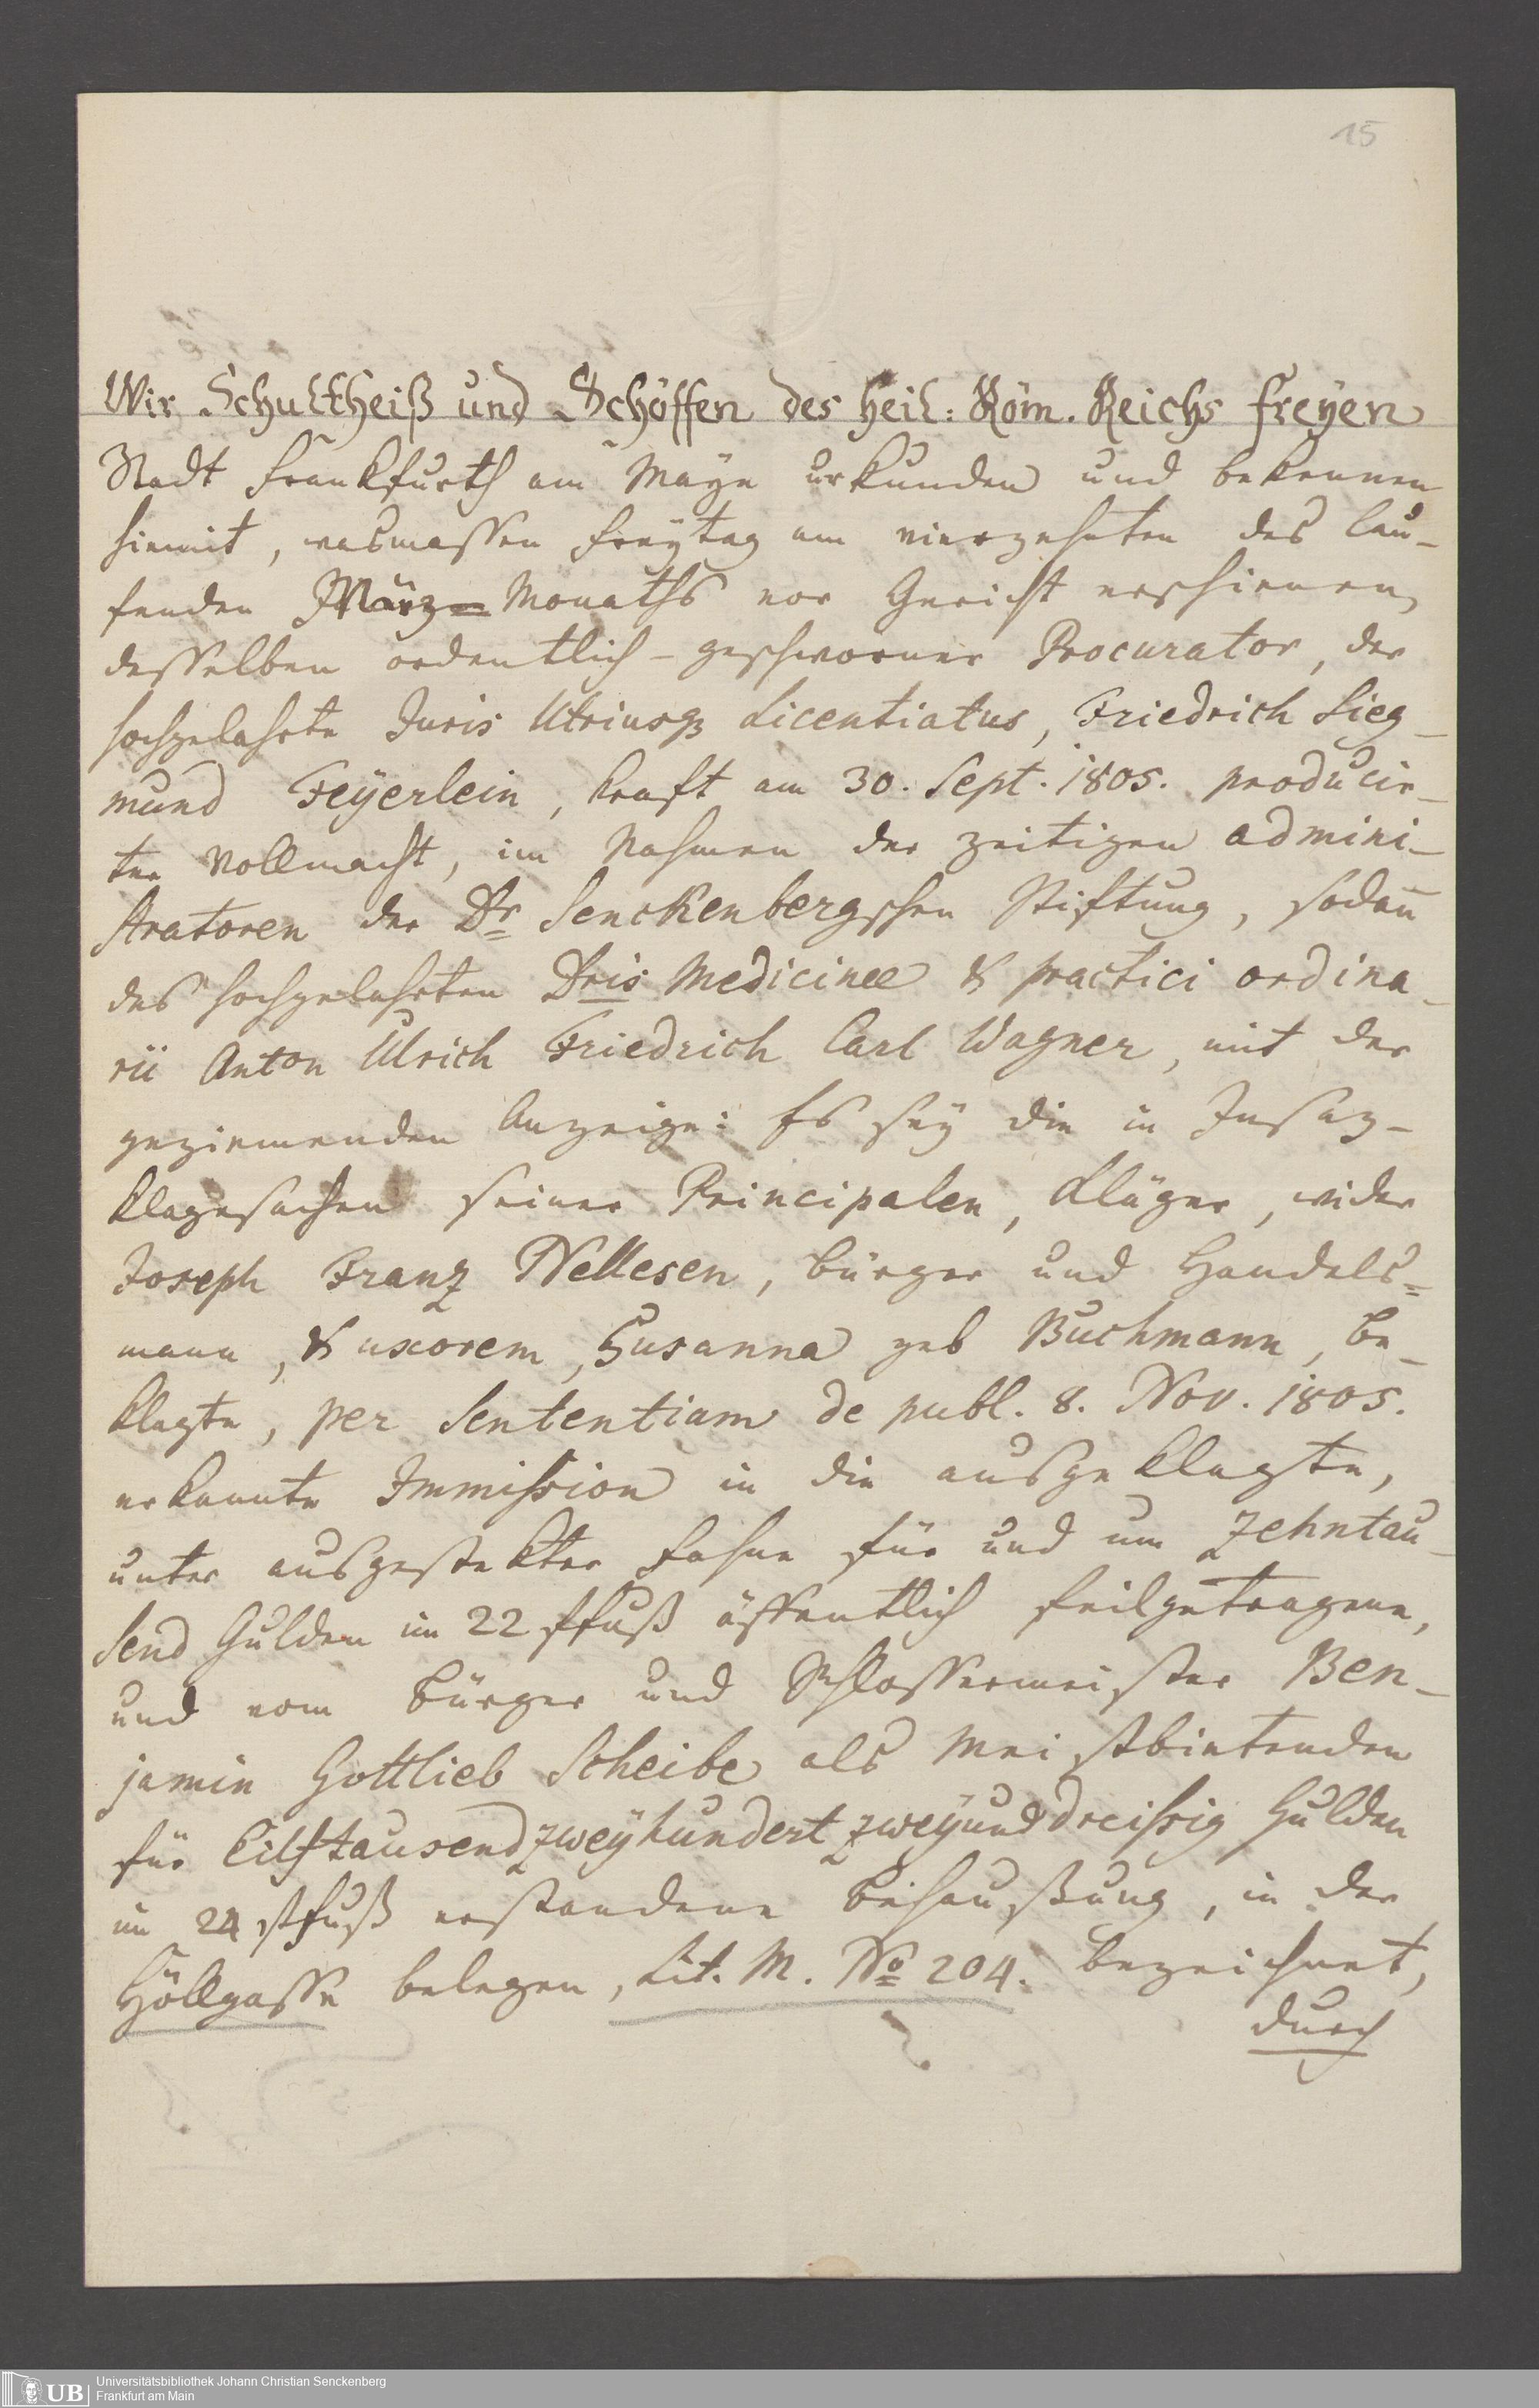 15
Wir Schultheiß und Schöffen des Heil: Röm. Reichs freÿen
Stadt Frankfurth am Maÿn urkunden und bekennen
hiemit, wasmassen Freÿtag am vierzehnten des lau-
fenden März-Monaths vor Gericht erschienen,
desselben ordentlich-geschworner Procurator, der
hochgelahrte Juris Utriusq Licentiatus, Friedrich Sieg-
mund Feÿerlein, kraft am 30. Sept. 1805. producir-
ter Vollmacht, im Nahmen der zeitigen Admini-
stratoren der Dr Senckenbergschen Stiftung, sodan̄
des hochgelahrten Dris Medicinæ & practici ordina-
rii Anton Ulrich Friedrich Carl Wagner, mit der
geziemenden Anzeige: Es seÿ die in Insaz-
klagesachen seiner Principalen, Kläger, wider
Joseph Franz Nellesen, Bürger und Handels-
mann, & uxorem, Susanna geb Buchmann, Be-
klagte, per Sententiam de publ. 8. Nov. 1805.
erkannte Immission in die ausgeklagte,
unter ausgestekter Fahne für und um Zehntau-
send Gulden im 22 ffuß öffentlich feilgetragene,
und vom Bürger und Schlossermeister Ben-
jamin Gottlieb Scheibe als Meistbietenden
für Eilftausendzweÿhundert zweÿunddreissig Gulden
im 24 ffuß erstandene Behaußung, in der
Höllgasse belegen, Lit. M. No 204. bezeichnet,
durch
UB
Universitätsbibliothek Johann Christian Senckenberg
Frankfurt am Main